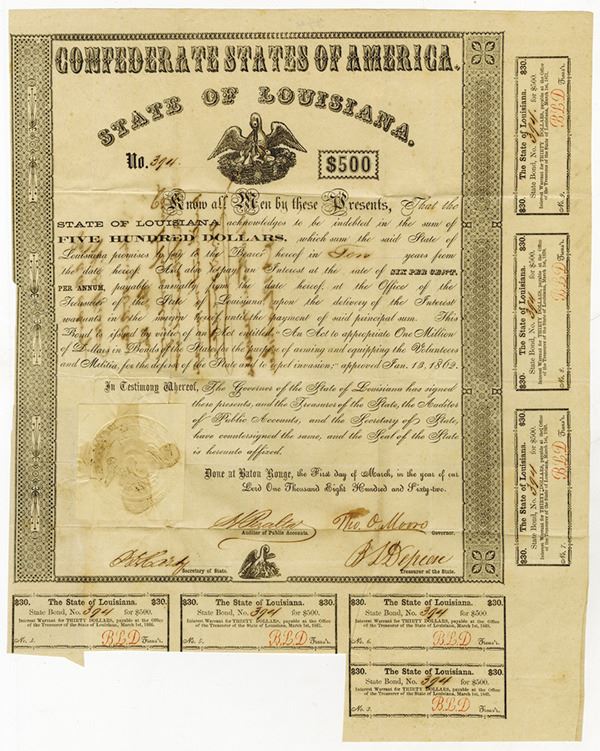 CONFEDERATE STATES OF AMERICA.
STATE OF LOUISIANA.
No. 394.
$500
Know all Men by these Presents, That the
STATE OF LOUISIANA acknowledges to be indebted in the sum of
FIVE HUNDRED DOLLARS, which sum the said State of
Louisiana promises to pay to the Bearer hereof in Ten years from
the date hereof. And also to pay an Interest at the rate of SIX PER CENT.
PER ANNUM, payable annually from the date hereof, at the Office of the
Treasurer of the State of Louisiana, upon the delivery of the Interest
warrants in the margin hereof, until the payment of said principal sum. This
Bond is issued by virtue of an Act entitled "An Act to appropriate One Million
of Dollars in Bonds of the State for the purpose of arming and equipping the Volunteers
and Militia, for the defense of the State and to repel invasion;" approved Jan. 13, 1862.
In Testimony Whereof, The Governor of the State of Louisiana has signed
these presents, and the Treasurer of the State, the Auditor
of Public Accounts, and the Secretary of State,
have countersigned the same, and the Seal of the State
is hereunto affixed.
Done at Baton Rouge, the First day of March, in the year of our
Lord One Thousand Eight Hundred and Sixty-two.
Tho. O. Moore
Auditor of Public Accounts.
Governor.
Secretary of State.
Treasurer of the State.
$30. The State of Louisiana. $30.
State Bond, No. 394 for $500.
Interest Warrant for THIRTY DOLLARS, payable at the Office
of the Treasurer of the State of Louisiana, March 1st, 1871.
No. 9. B.L.D Treas'r.
$30. The State of Louisiana. $30.
State Bond, No. 394 for $500.
Interest Warrant for THIRTY DOLLARS, payable at the Office
of the Treasurer of the State of Louisiana, March 1st,
No. 8. B.L.D Treas'r.
$30. The State of Louisiana. $30.
State Bond, No. 394 for $500.
Interest Warrant for THIRTY DOLLARS, payable at the Office
of the Treasurer of the State of Louisiana, March 1st,
No. 7. B.L.D Treas'r.
$30. The State of Louisiana. $30.
State Bond, No. 394 for $500.
Interest Warrant for THIRTY DOLLARS, payable at the Office
of the Treasurer of the State of Louisiana, March 1st,
B.L.D Treas'r.
$30. The State of Louisiana. $30.
State Bond, No. 394 for $500.
Interest Warrant for THIRTY DOLLARS, payable at the Office
of the Treasurer of the State of Louisiana, March 1st, 1867.
No. 5. B.L.D Treas'r.
$30. The State of Louisiana. $30.
State Bond, No. 394 for $500
Interest Warrant for THIRTY DOLLARS, payable at the Office
of the Treasurer of the State of Louisiana, March 1st,
No. 6. B.L.D Treas'r.
$30. The State of Louisiana. $30.
State Bond, No. 394 for $500.
Interest Warrant for THIRTY DOLLARS, payable at the Office
of the Treasurer of the State of Louisiana, March 1st,
No. 3. B.L.D Treas'r.